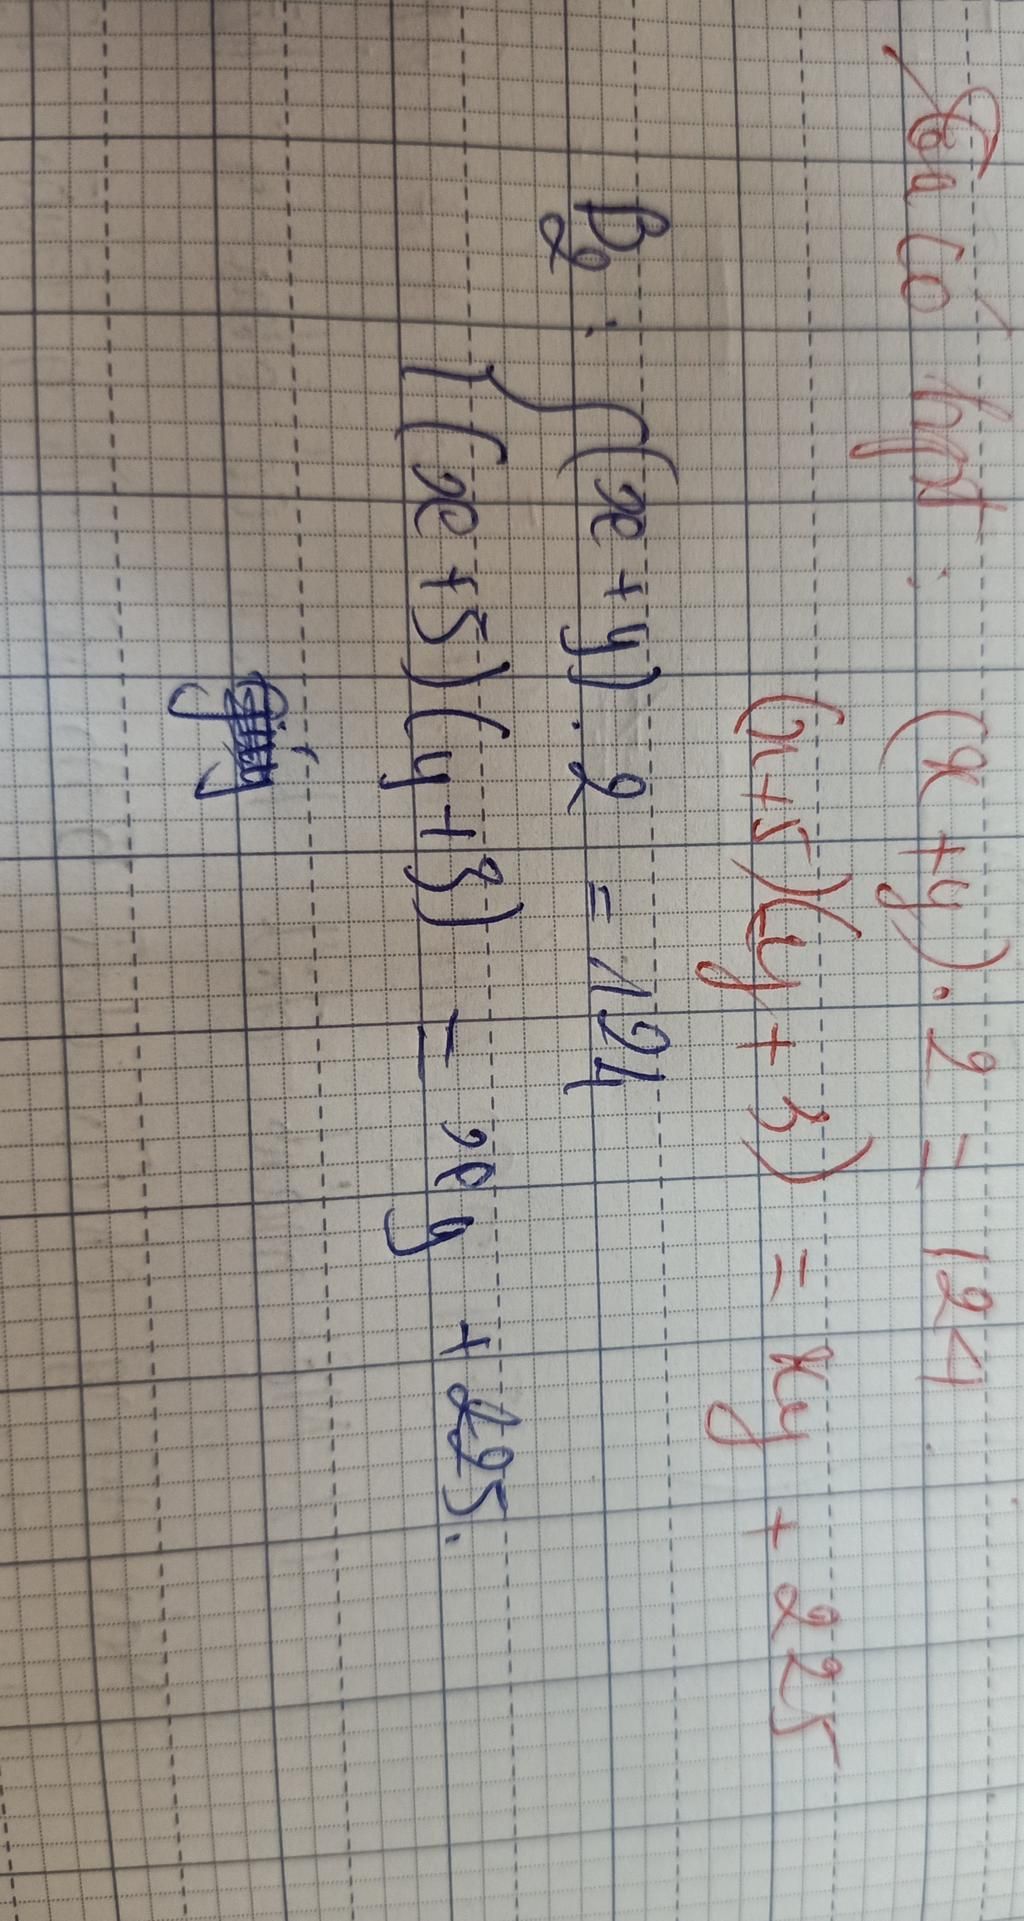 Ta có hpt : (x + y) . 2 = 124
(x + 5)(y + 3) = xy + 225
B2 : { (x + y) . 2 = 124
(x + 5) (y + 3) = xy + 225.